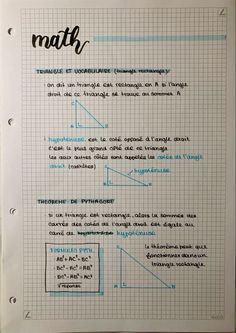 math
TRIANGLE ET VOCABULAIRE (triangle rectangle):
• On dit un triangle est rectangle en A si l'angle
droit de ce triangle se trouve au sommet A
C
A
B
• hypoténuse est le coté opposé à l'angle droit
c'est le plus grand côté de ce triangle
les deux autres côtés sont appelés les cotés de l'angle
droit (cathètes)
C
A
B
THEOREME DE PYTHAGORE
• si un triangle est rectangle, alors la somme des
carrés des cotés de l'angle droit est égale au
carré de hypoténuse
FORMULES PYTH.
• AB² + AC² = BC²
• BC² - AC² = AB²
• BC² - AB² = AC²
√réponse
C
A
B
Le théorème peut que
fonctionner dans un
triangle rectangle